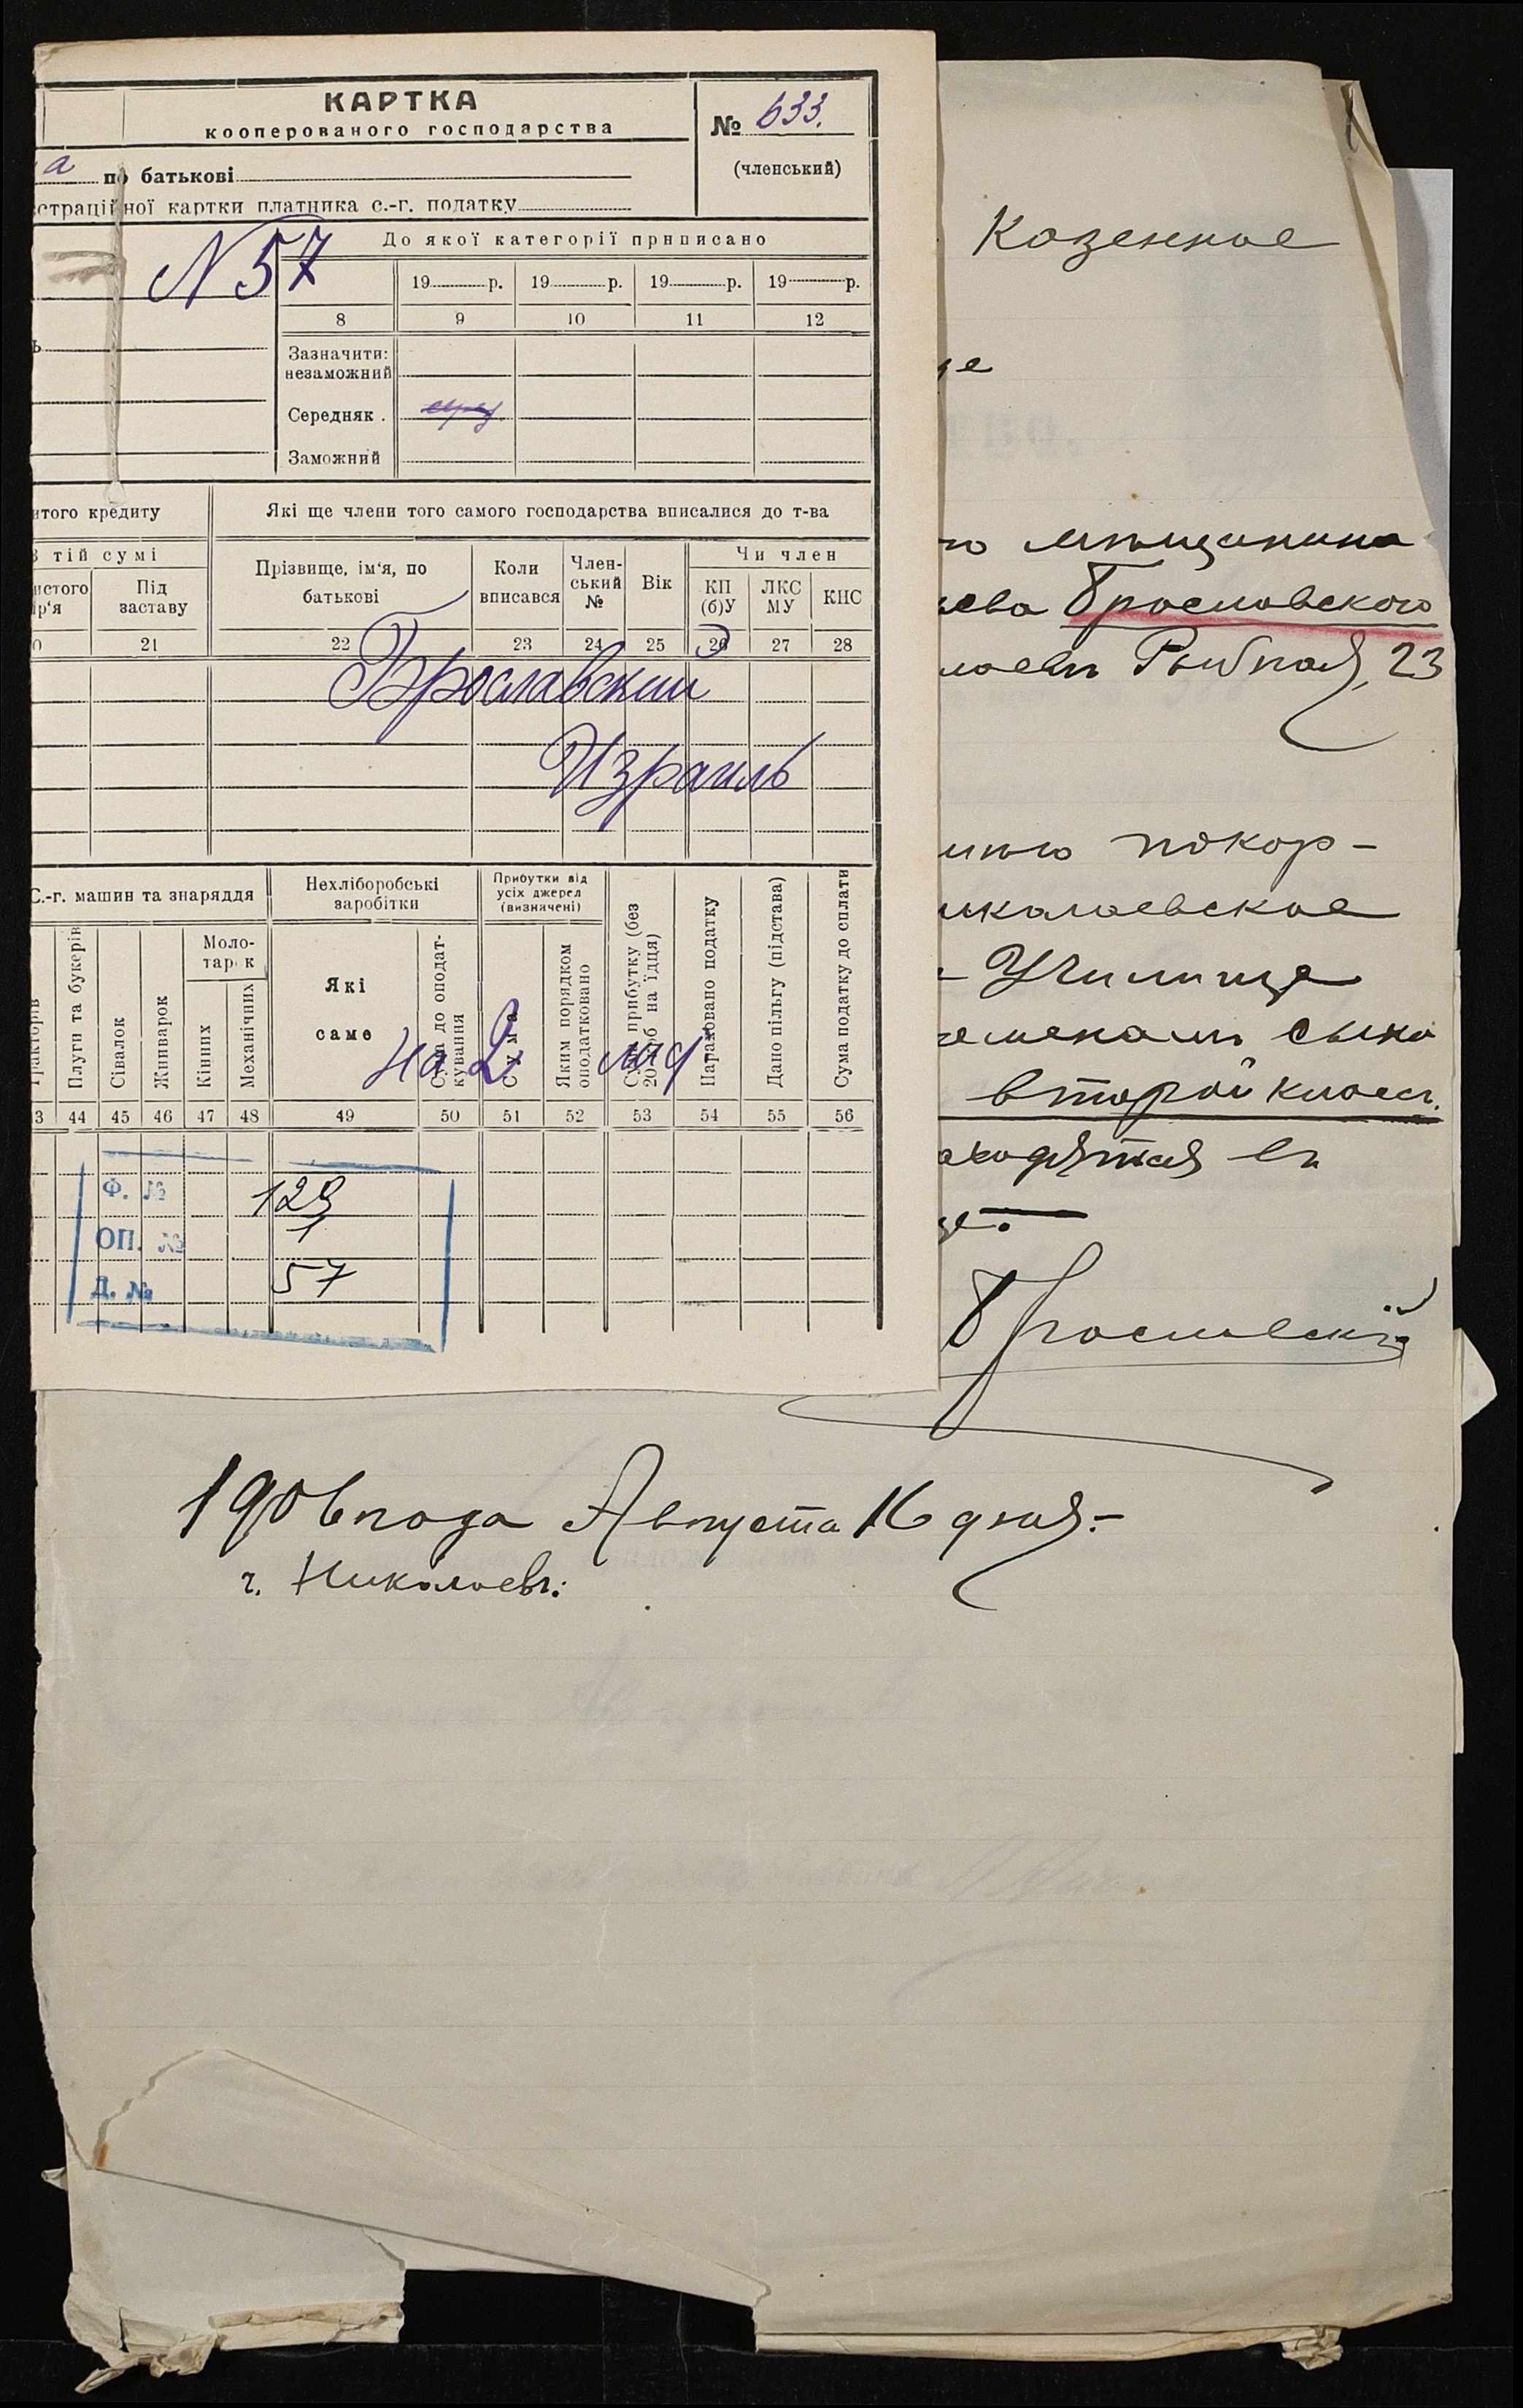 КАРТКА
кооперованого господарства
№ 633.
(членський)
а по батькові
страційної картки платника с.-г. податку
N 57
До якої категорії приписано
19 р. 19 р. 19 р. 19 р.
8 9 10 11 12
Зазначити:
незаможний
Середняк . серед.
Заможний
итого кредиту
Які ще члени того самого господарства вписалися до т-ва
З тій сумі
истого
ір'я
Під
заставу
Прізвище, ім'я, по
батькові
Коли
вписався
Член-
ський
№
Вік
Чи член
КП
(б)У
ЛКС
МУ
КНС
0 21 22 23 24 25 26 27 28
Брославский
Израиль
С.-г. машин та знаряддя
Нехліборобські
заробітки
Прибутки від
усіх джерел
(визначені)
Моло-
тарок
Тракторів
Плуги та букерів
Сівалок
Жниварок
Кінних
Механічних
Які
саме
Сума до оподат-
кування
Сума
Яким порядком
оподатковано
Сума прибутку (без
20 руб на їдця)
Нараховано податку
Дано пільгу (підстава)
Сума податку до сплати
на 2 л
3 44 45 46 47 48 49 50 51 52 53 54 55 56
Ф. № 129
ОП. № 1
Д. № 57
Казенное
ще
мѣщанина
Брославского
лаевъ Рыбная, 23
покор-
иколаевское
Училище
сына
второй классъ.
аходятся въ
Брославскій
1906 года Августа 16 дня.-
г. Николаевъ.